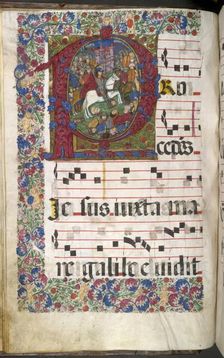 P Ro
Ie sus iuxta ma
re galilee uidit